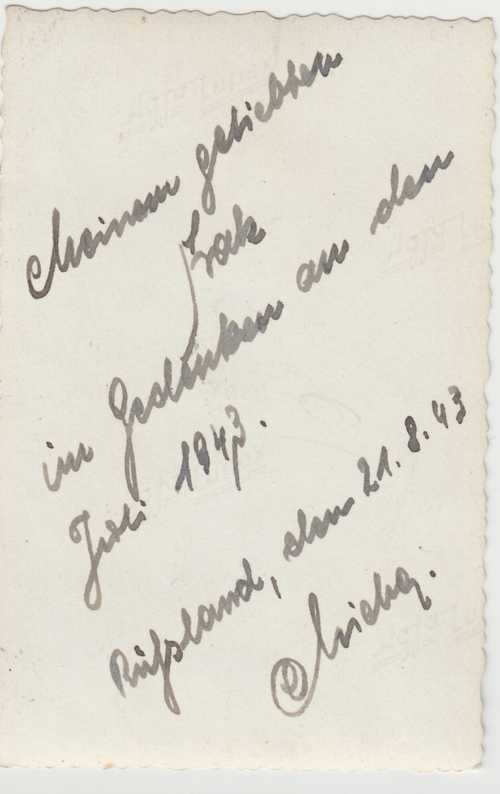 Meinem geliebten
Zak
im Gedenken an den
Juli 1943.
Rußland, den 21.8.43
Micha.